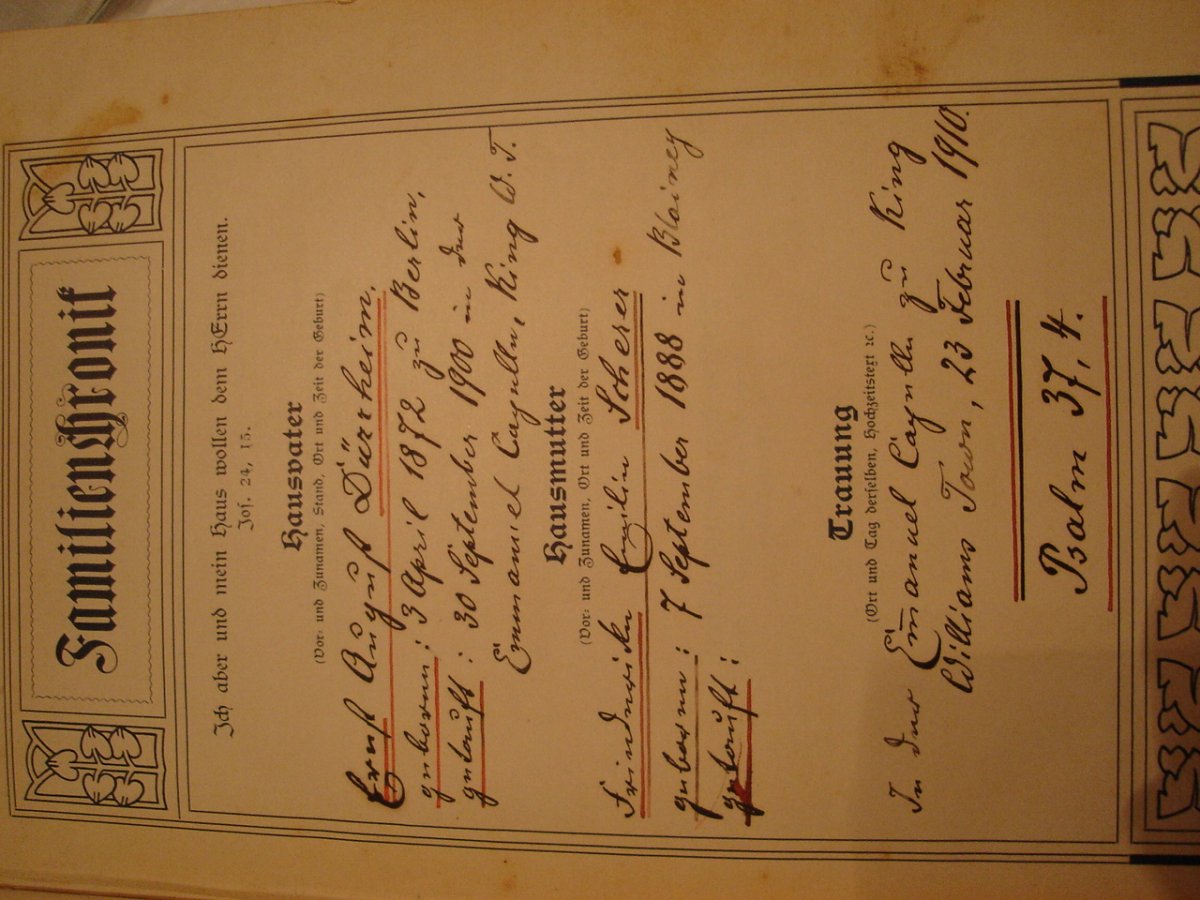 Familienchronik
Ich aber und mein Haus wollen dem HErrn dienen.
Jos. 24, 15.
Hausvater
(Vor- und Zunamen, Stand, Ort und Zeit der Geburt)
Ernst August Dürrheim.
geboren: 3 April 1872 zu Berlin,
getauft: 30 September 1900 in der
Emmanuel Capelle, King W. T.
Hausmutter
(Vor- und Zunamen, Ort und Zeit der Geburt)
Friederike Emilie Scherer
geboren: 7 September 1888 in Blainey
getauft:
Trauung
(Ort und Tag derselben, Hochzeitstext ꝛc.)
In der Em̄anuel Capelle zu King
Williams Town, 23 Februar 1910.
Psalm 37, 4.